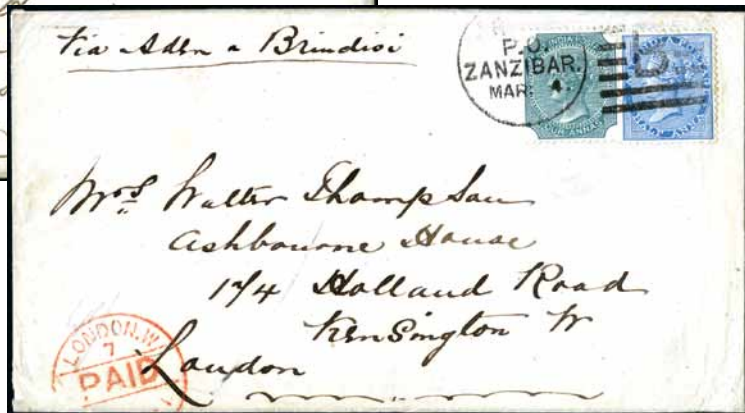 Via Aden & Brindisi
P.O.
ZANZIBAR.
MAR: 4.
B
FOUR ANNAS
HALF ANNA
Mrs Walter Thompson
Ashbourne House
174 Holland Road
Kensington W
London
LONDON.W
7
PAID